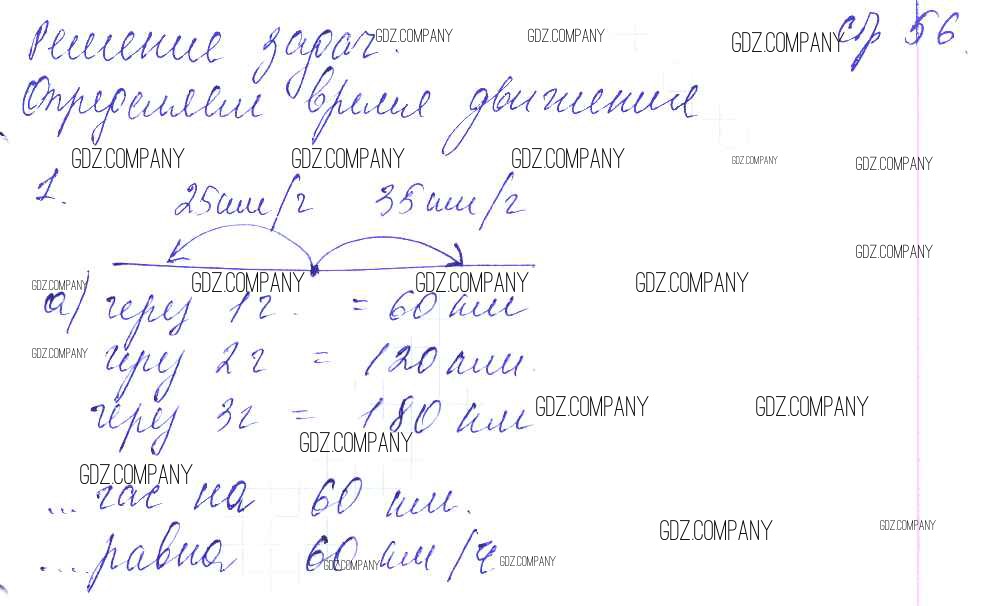 Решение задач. GDZ.COMPANY GDZ.COMPANY GDZ.COMPANY стр 56
Определяем время движения
GDZ.COMPANY GDZ.COMPANY GDZ.COMPANY GDZ.COMPANY GDZ.COMPANY
1. 25км/ч 35км/ч
GDZ.COMPANY
GDZ.COMPANY GDZ.COMPANY GDZ.COMPANY GDZ.COMPANY
а) через 1ч. = 60 км
GDZ.COMPANY через 2ч = 120 км.
через 3ч = 180 км GDZ.COMPANY GDZ.COMPANY
GDZ.COMPANY
GDZ.COMPANY
...час на 60 км.
GDZ.COMPANY GDZ.COMPANY
...равна 60 км/ч GDZ.COMPANY GDZ.COMPANY